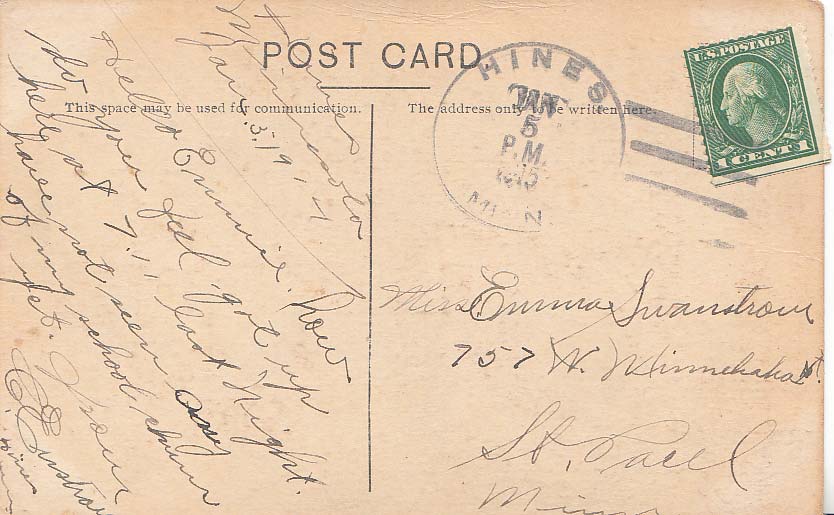 POST CARD
This space may be used for communication.
The address only to be written here.
HINES
JAN
5
P.M.
1915
MINN
U.S. POSTAGE
1 CENT 1
Hines
Minnesota
Jan, 5, 1914
Hello Emmie. how
do you feel. got up
here at 7.11 last night.
have not seen any
of my school chum
yet. From
Miss Emma Swanstrom
757 W. Minnehaha St.
St, Paul
Minn